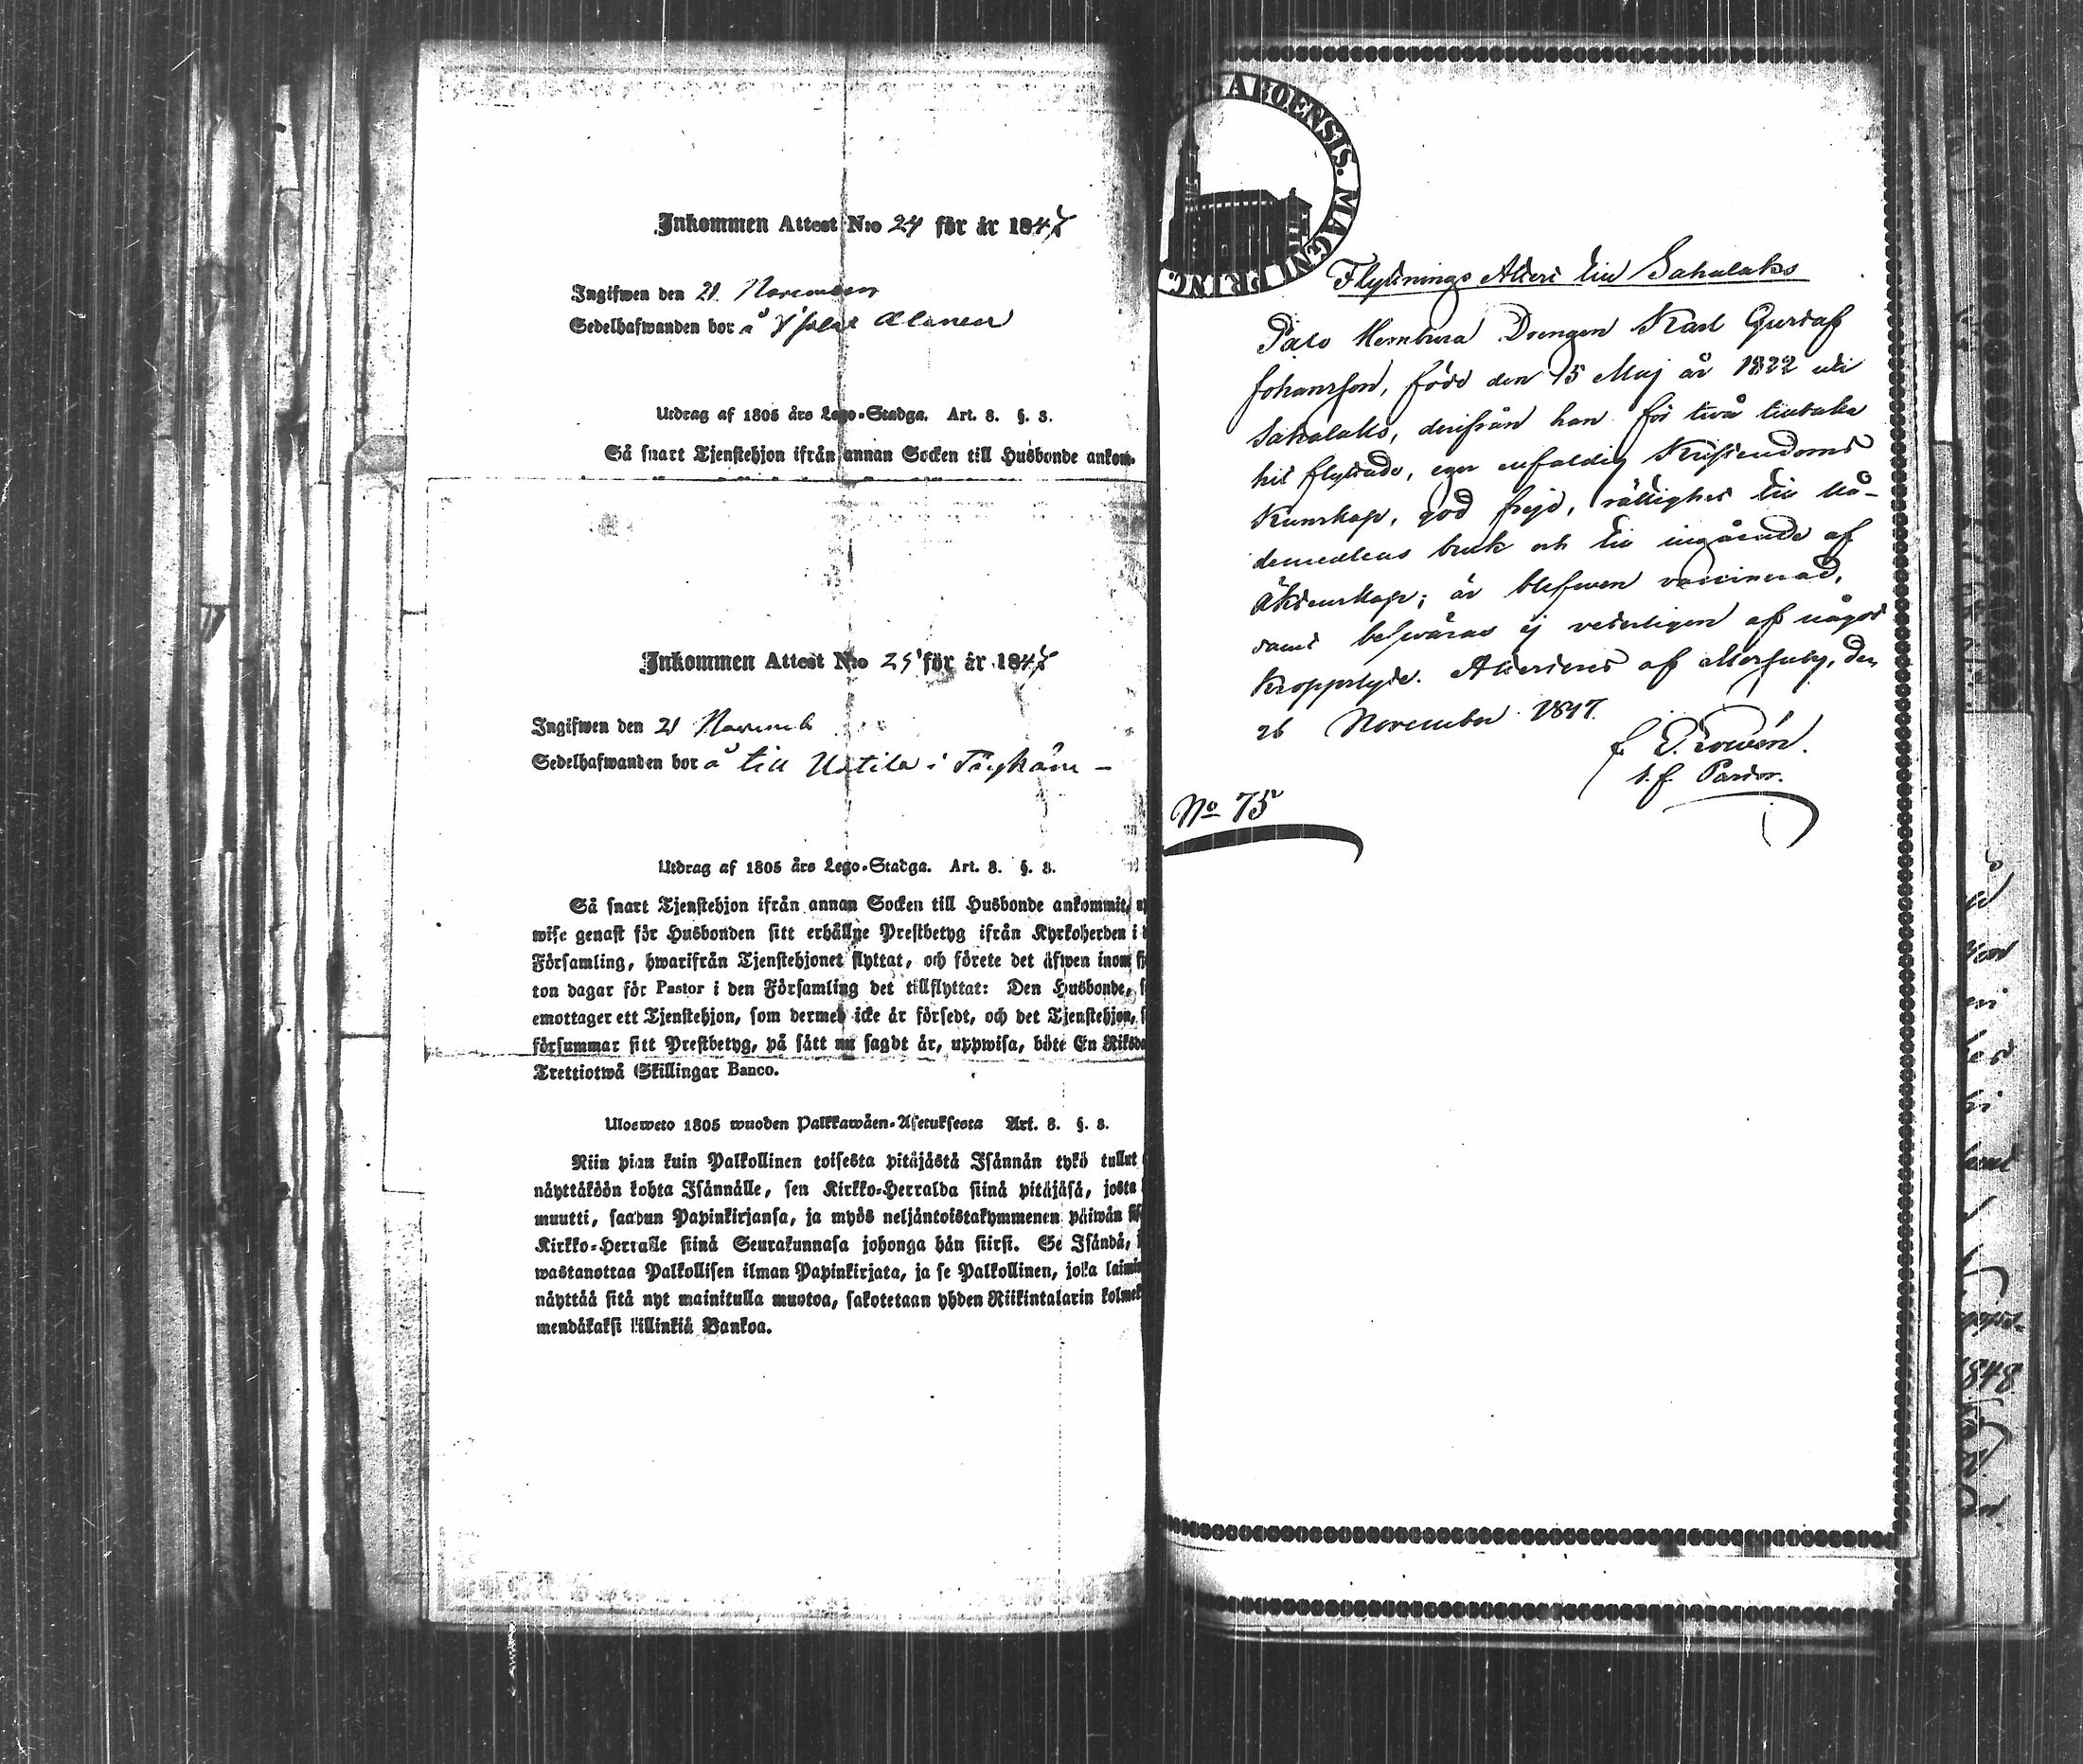 Inkommen Attest N:o 24 för år 1847
Ingifwen den 21 November
Sedelhafwanden bor å
Utdrag af 1805 års Lego-Stadga. Art. 8. §. 8.
Så snart Tjenstehjon ifrån annan Socken till Husbonde ankom-
Inkommen Attest N:o 25 för år 1847
Ingifwen den 21 Novemb
Sedelhafwanden bor å till Uotila i
Utdrag af 1805 års Lego-Stadga. Art. 8. §. 8.
Så snart Tjenstehjon ifrån annan Socken till Husbonde ankommit,
wise genast för Husbonden sitt erhållne Prestbetyg ifrån Kyrkoherden i
Församling, hwarifrån Tjenstehjonet flyttat, och förete det äfwen inom
ton dagar för Pastor i den Församling det tillflyttat: Den Husbonde,
emottager ett Tjenstehjon, som dermed icke är försedt, och det Tjenstehjon,
försummar sitt Prestbetyg, på sätt nu sagdt är, uppwisa, böte En Riksda
Trettiotwå Skillingar Banco.
Ulosweto 1805 wuoden Palkkawäen-Asetuksesta Art. 8. §. 8.
Niin pian kuin Palkollinen toisesta pitäjästä Isännän tykö tullut
näyttäköön kohta Isännälle, sen Kirkko-Herralda siinä pitäjäsä, josta
muutti, saadun Papinkirjansa, ja myös neljäntoistakymmenen päiwän
Kirkko-Herralle siinä Seurakunnasa johonga hän siirsi. Se Isändä,
wastanottaa Palkollisen ilman Papinkirjata, ja se Palkollinen, joka laimin
näyttää sitä nyt mainitulla muotoa, sakotetaan yhden Riikintalarin kolmek
mendäkaksi killinkiä Bankoa.
ABOENSIS. MAGNI PRINC.
Flyttnings Attest till Sahalaks
Palo Hemtura Drengen Karl Gustaf
Johansson, född den 15 Maj år 1822 uti
Sahalaks, derifrån han för två tillbaka
hit flyttade, eger enfaldig Kristendoms
Kunskap, god frejd, rättighet till Nå-
demedlens bruk och till ingående af
Äktenskap; är blefwen vaccinerad,
samt beswäras ej veterligen af något
kroppslyte. Attesteras af Morsuby, den
26 November 1847.
t. f. Pastor.
No 75
1848